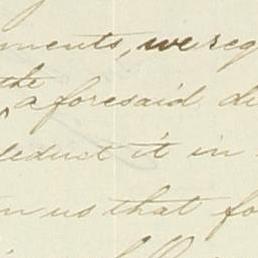 ments, we req
the
aforesaid de
deduct it in
us that fo